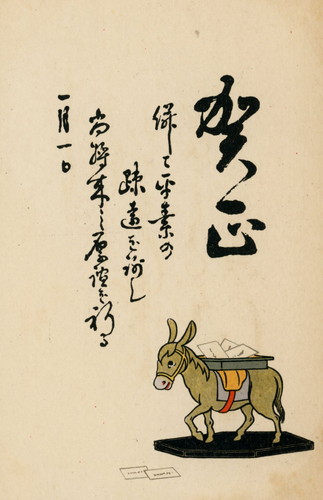 賀正
併して平素の
疎遠を謝し
尚将来之厚誼を祈る
一月一日